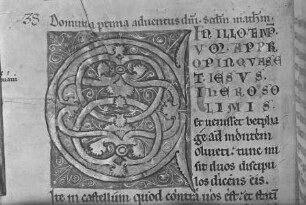 38 Dominica prima adventus dñi. Scdm mathm.
IN ILLO TEMP
VM APPRO
PINQVASSE
T IESVS
IHEROSO
LIMIS
et uenisset bethpha
ge ad montem
oliueti: tunc mi
sit duos discipu
los dicens eis.
Ite in castellum quod contra uos est: et stati